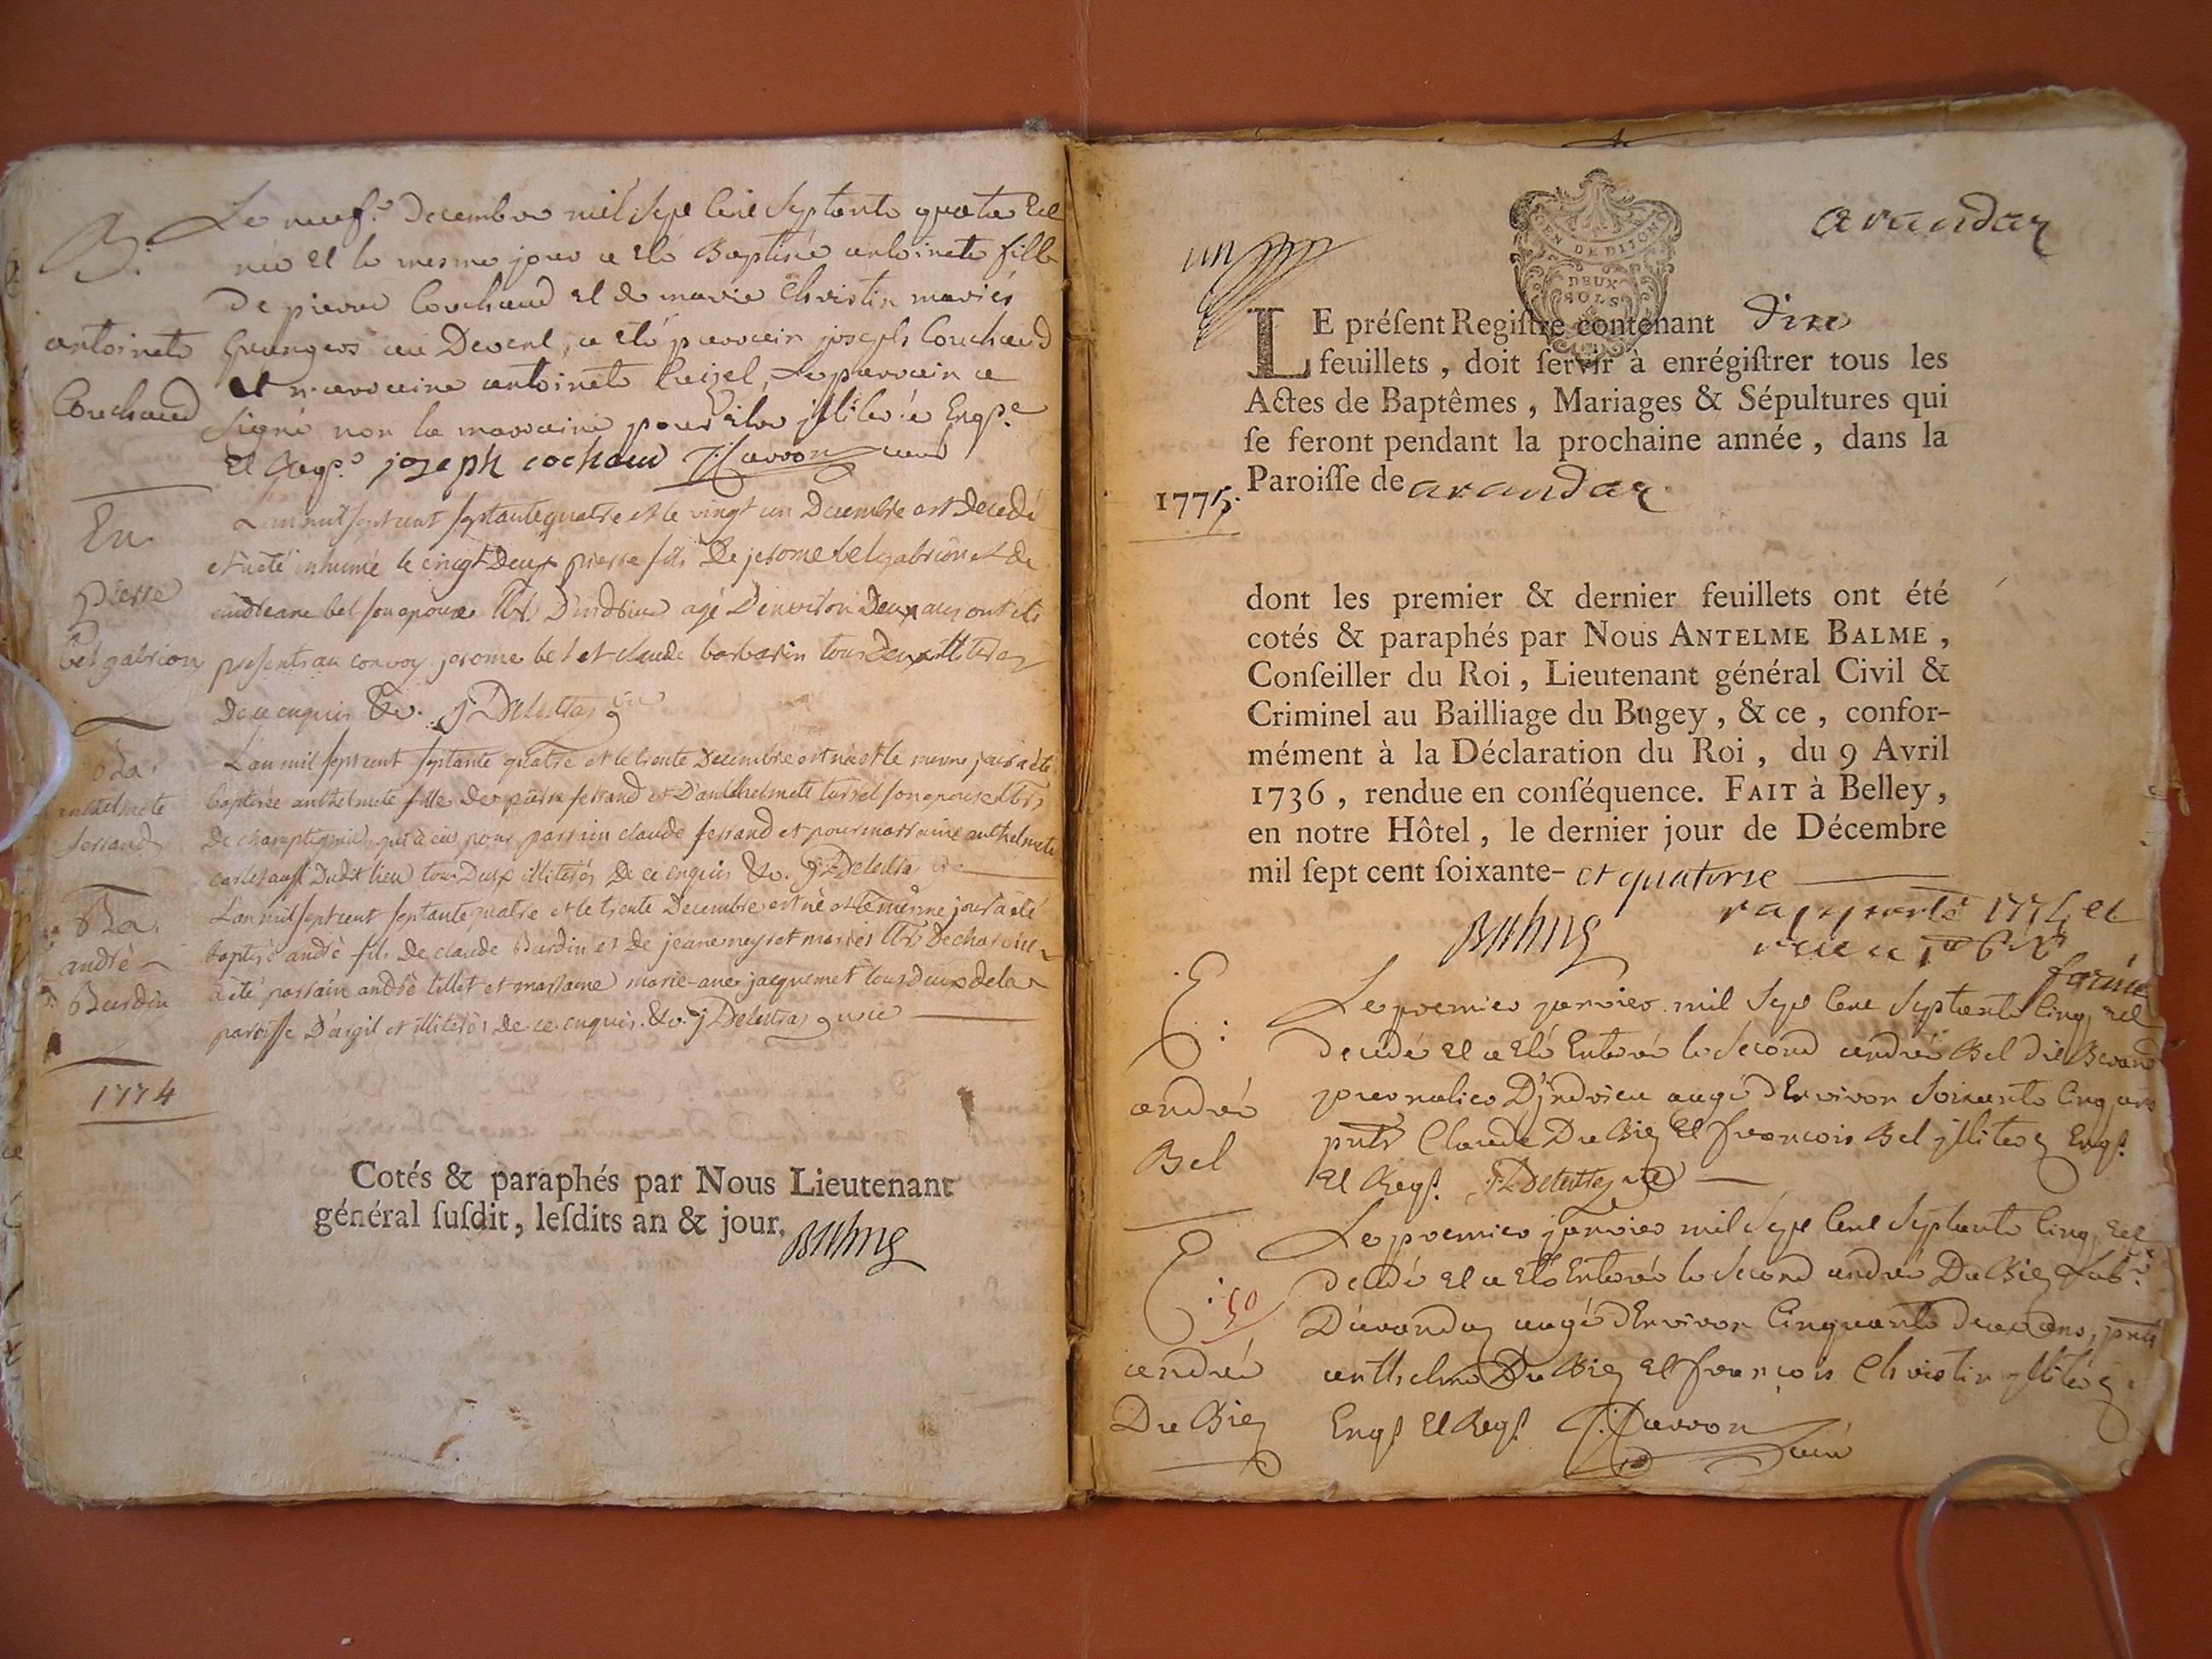 B. Le neuf.e Decembre mil Sept Cent Septante quatre Est
née et le mesme jour a eté Baptisée antoinete fille
de pierre Couchaud et de marie Christin mariés
antoinete Grangers au Devent, a eté parrain joseph Couchaud
Couchaud et marraine antoinete, Le parrain a
signé non la marraine pour estre jlliterée Enqse.
et Reqse. joseph cochaud J. Carron curé
En. L'an mil sept cent septante quatre et le vingt un Decembre est decedé
et a eté inhumé le vingt Deux pierre fils De jerome bel gabrion et de
pierre andreane bel son epouse D'indrieu agé D'environ Deux ans ont eté
bel gabrion presents au convoy jerome bel et claude barbarin tous Deux illiteres
De ce enquis &c.
Ba. L'an mil sept cent septante quatre et le trente Decembre est née et le meme jour a été
anthelmete baptisée anthelmete fille de pierre ferrand et D'anthelmete son epouse
ferrand De qui a eu pour parrain claude ferrand et pour marraine anthelmete
aussi Dudit lieu tous Deux illiterés De ce enquis &c.
Ba. L'an mil sept cent septante quatre et le trente Decembre est né et le meme jour a été
andré baptisé andré fils De claude Burdin et De jeane neyret mariés
Burdin a été parrain andré tillet et marraine marie-ane jacquemet tous Deux de la
paroisse D'argil et illiterés De ce enquis. &c.
1774
Cotés & paraphés par Nous Lieutenant
général ſuſdit, leſdits an & jour. Balme
un
arandaz
EN DE DIJON
DEUX
SOLS
LE préſent Regiſtre contenant dix
feuillets, doit ſervir à enrégiſtrer tous les
Actes de Baptêmes, Mariages & Sépultures qui
ſe feront pendant la prochaine année, dans la
1775. Paroiſſe de arandaz.
dont les premier & dernier feuillets ont été
cotés & paraphés par Nous ANTELME BALME,
Conſeiller du Roi, Lieutenant général Civil &
Criminel au Bailliage du Bugey, & ce, confor-
mément à la Déclaration du Roi, du 9 Avril
1736, rendue en conſéquence. FAIT à Belley,
en notre Hôtel, le dernier jour de Décembre
mil ſept cent ſoixante- et quatorse
Balme
rapporté 1774 et
E: Le premier janvier mil Sept Cent Septante Cinq est
decedé et a eté Enterré le Second andré Bel dit
andré journalier D'jndrieu aagé d'Environ Soixante Cinq ans
Bel pnts Claude Du Biez et françois Bel jlliterez Enqs.
et Reqs.
E: 50 Le premier janvier mil Sept Cent Septante Cinq, est
decedé et a eté Enterré le Second andré Du Biez Labr.
D'arandaz aagé d'Environ Cinquante deux ans, pnts
andré anthelme Du Biez et françois Christin jlliterez
Du Biez Enqs et Reqs. J. Carron curé